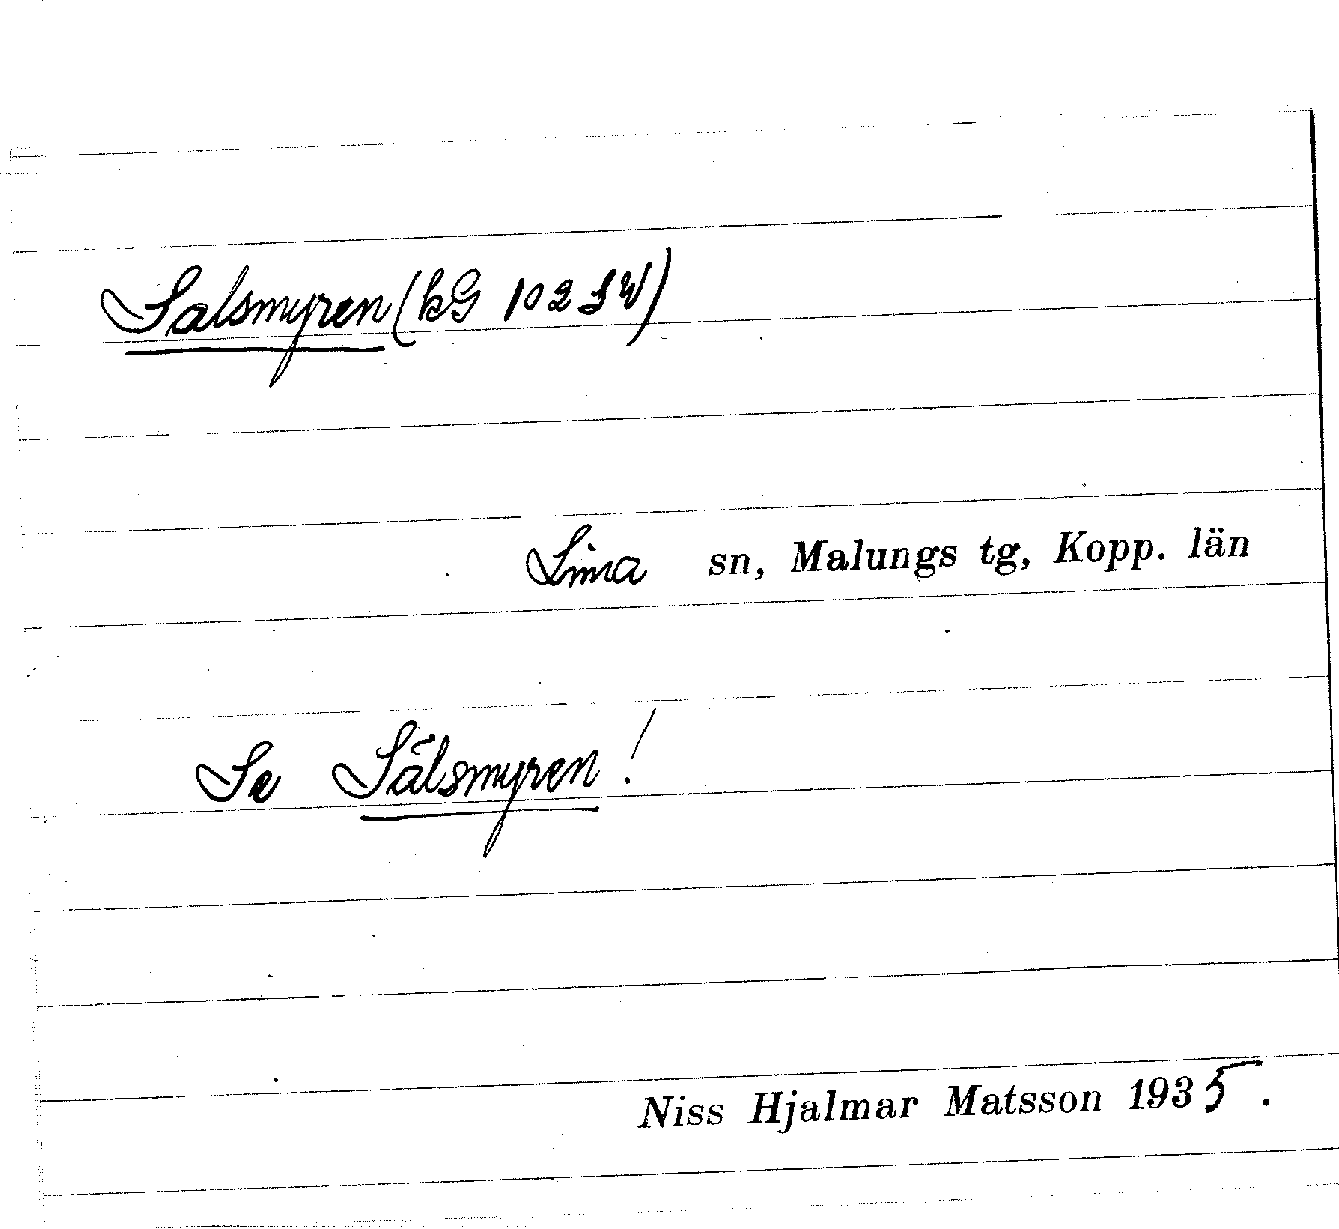 Salsmyren (kG 102 SW)
Lima sn, Malungs tg, Kopp. län
Se Sälsmyren!
Niss Hjalmar Matsson 1935.